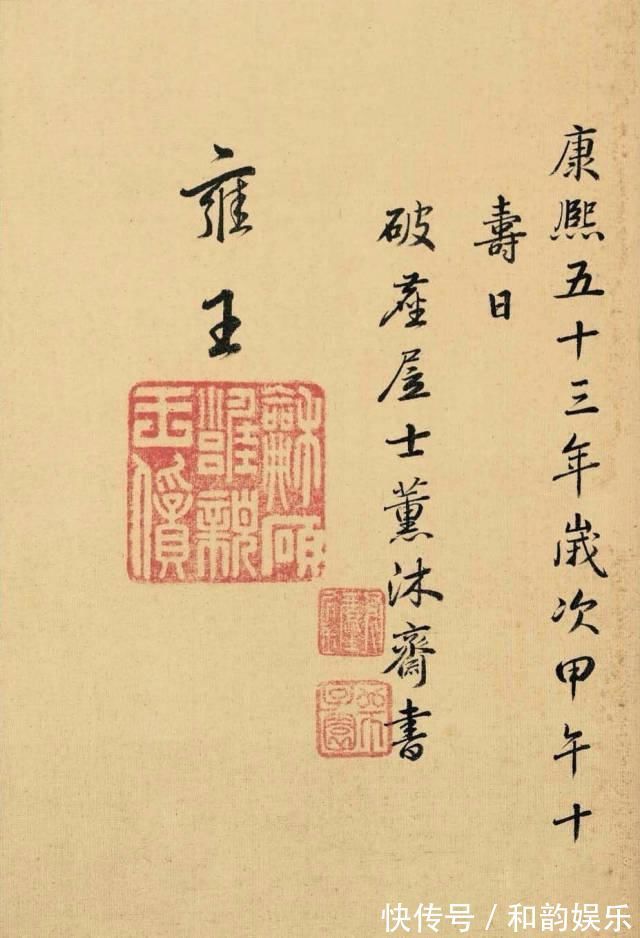 康熙五十三年歲次甲午十
壽日
破塵居士薰沐齋書
雍王
龢碩
雝親
王
快传号／和韵娱乐